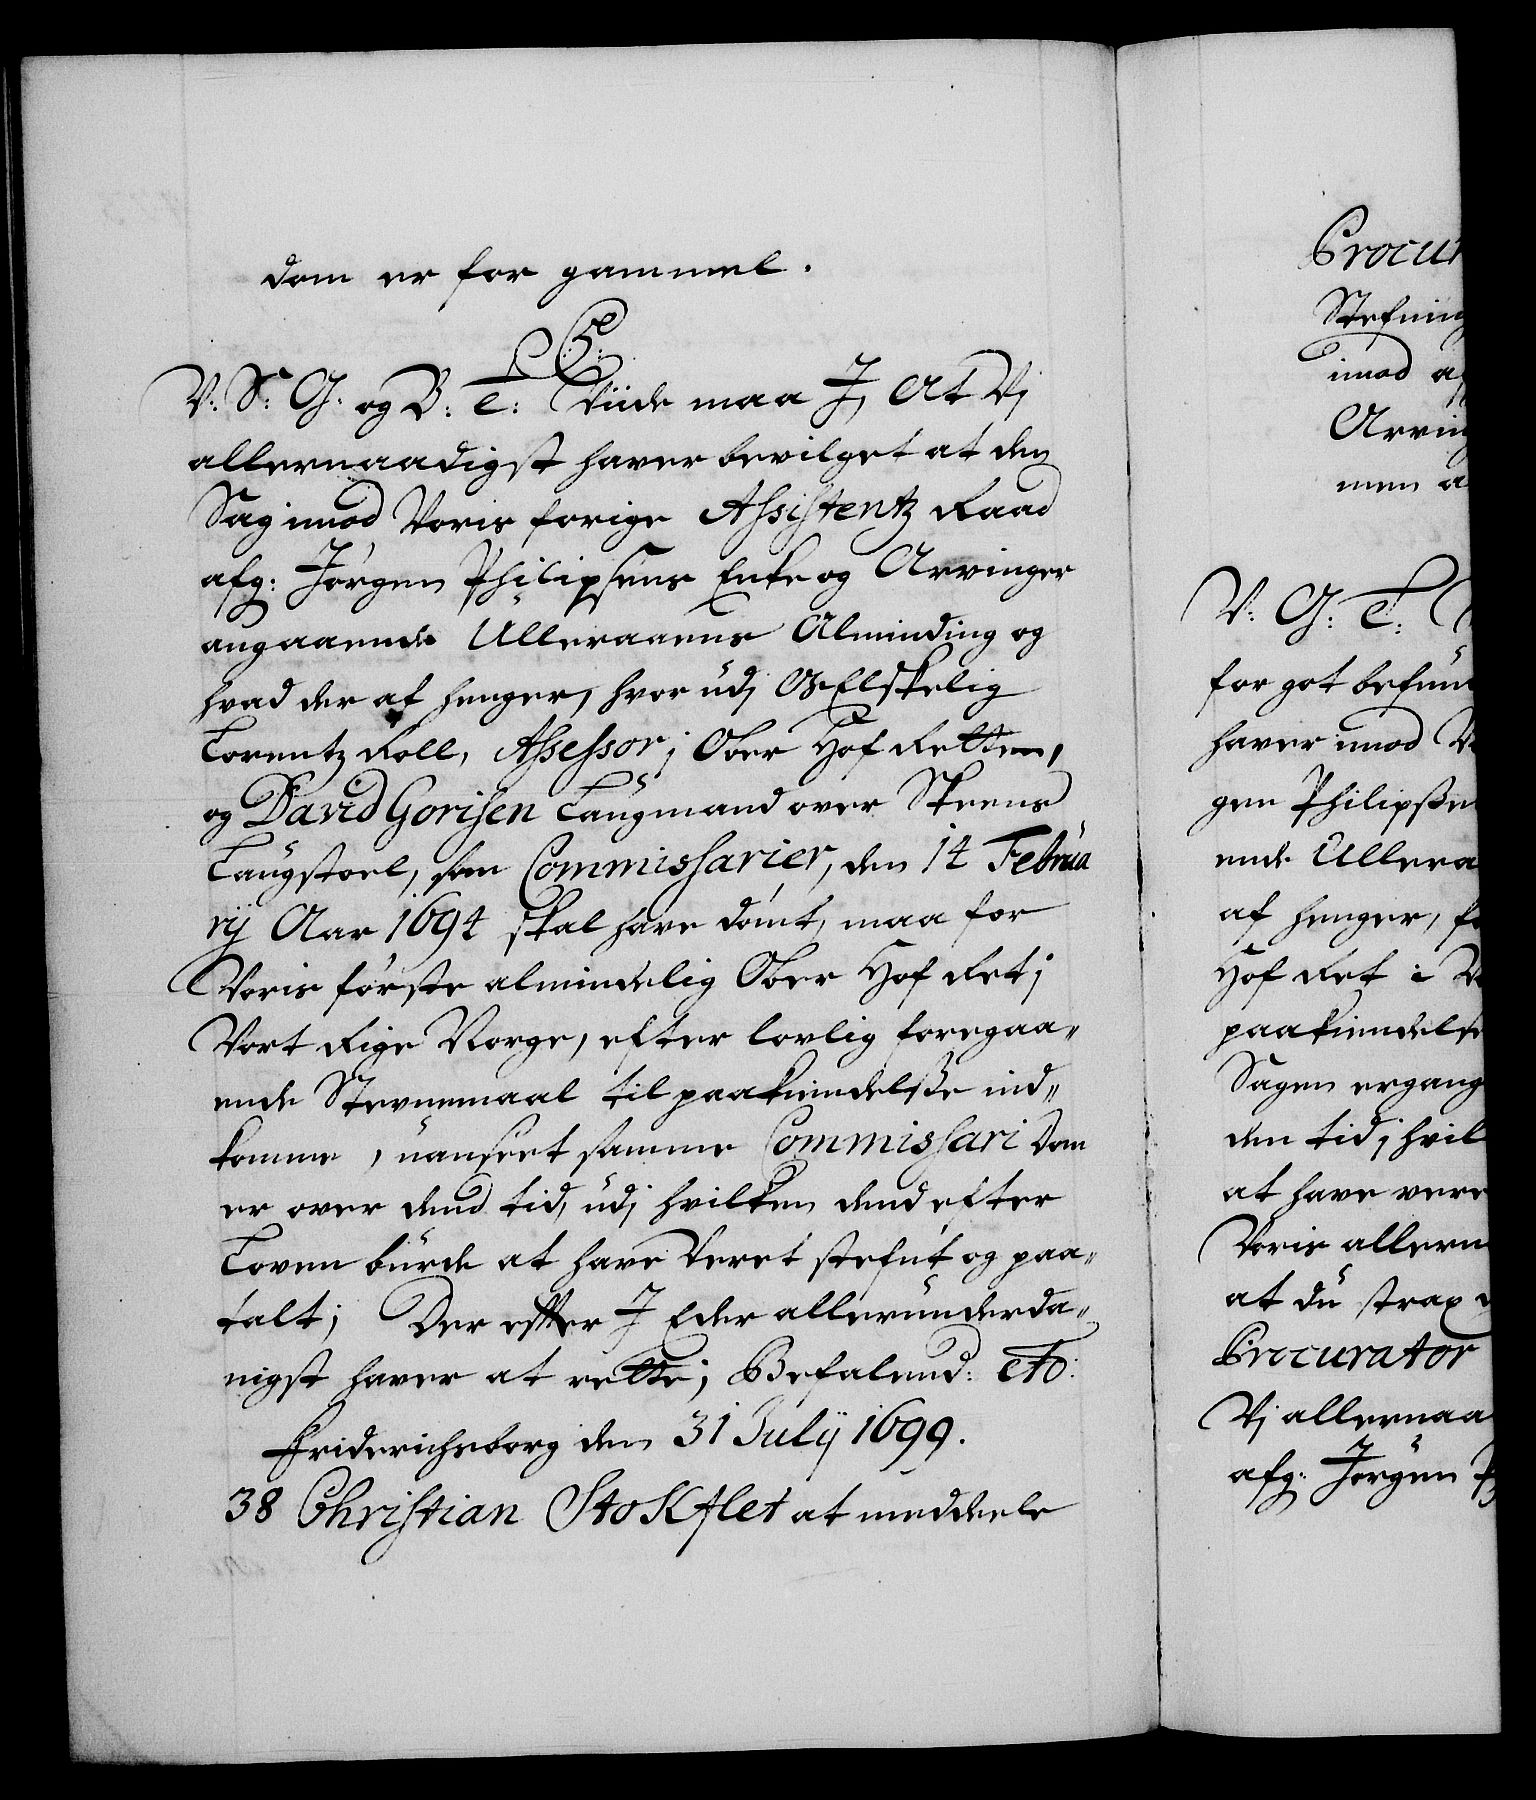 dom er for gammel.
C5.
V: S: G: og B: T: Viide maa J, At Vj
allernaadigst haver bevilget at den
Sag imod Voris forige Assistentz Raad
afg: Jørgen Philipsens Enke og Arvinger
angaaende Ulleraaens Alminding og
hvad der af henger, hvor udj Os Elskelig
Lorentz Roll, Assessor j Ober Hof Retten,
og David Gorisen Laugmand over Skeens
Laugstoel, som Commissarier, den 14 Februa
rij Aar 1694 skal have dømt, maa for
Voris første almindelig Ober Hof Ret j
Vort Rige Norge, efter lovlig foregaa-
ende Stevnemaal til paakiendelsse ind-
komme, uanseet samme Commissari dom
er over dend tid, udj hvilken dend efter
Loven burde at have veret stefnt og paa-
talt; Der efter J Eder allerunderda-
nigst haver at rette; Befalend:
Friderichsborg den 31 Julij 1699.
38 Christian Stokflet at meddeele
Procur
Stefning
imod af
Arving
men a
V: G: T:
for got befun
haver imod V
gen Philipsse
ende Ullera
af henger, fo
Hof Ret i Vo
paakiendelse
Sagen ergang
den tid j hvil
at have vere
Voris allern
at du strax
Procurator
Vj allernaa
afg: Jørgen P